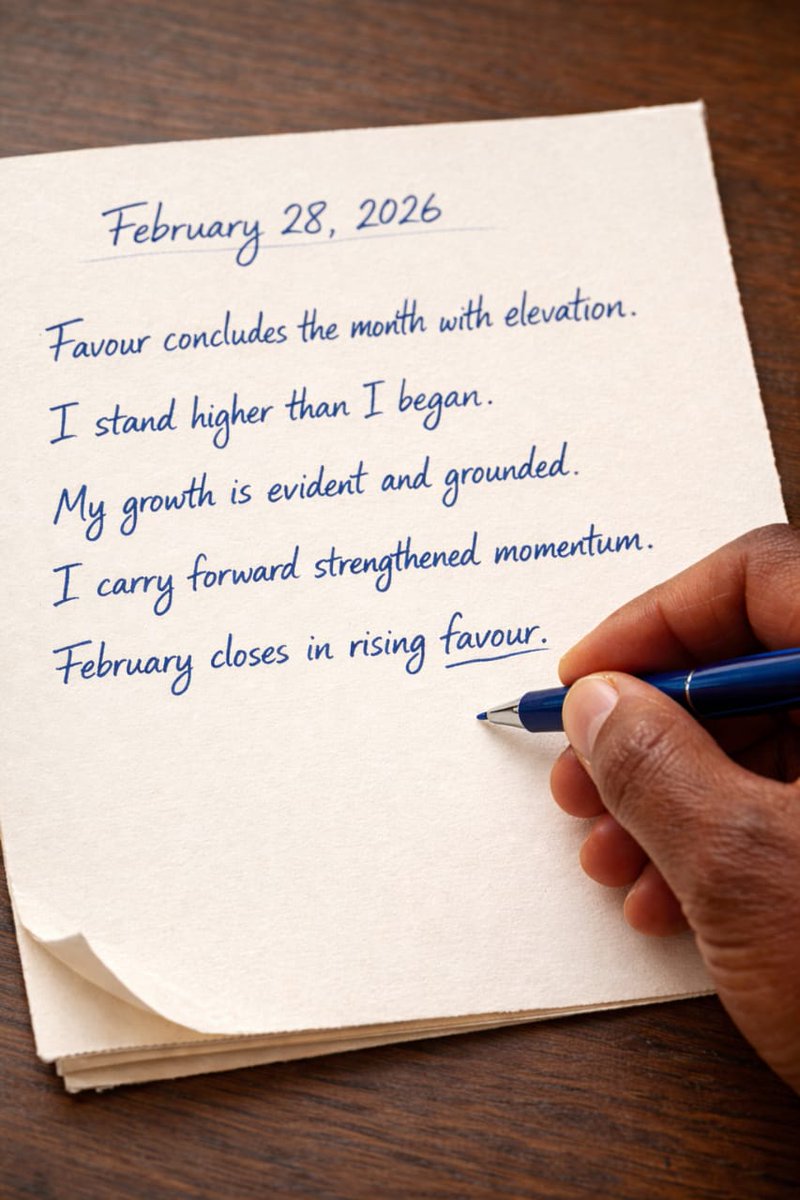 February 28, 2026
Favour concludes the month with elevation.
I stand higher than I began.
My growth is evident and grounded.
I carry forward strengthened momentum.
February closes in rising favour.